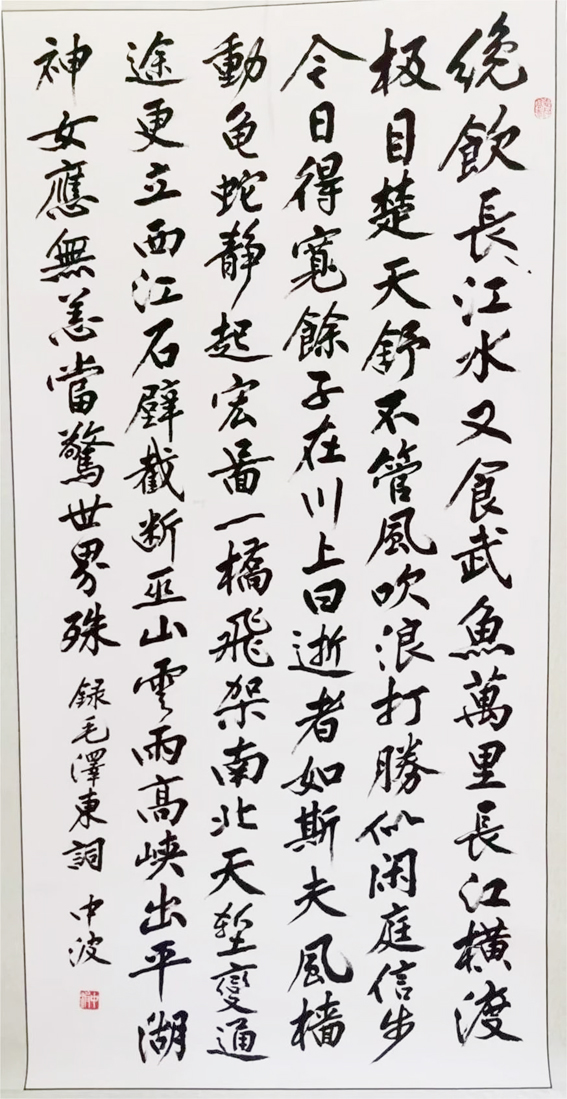 纔飲長江水又食武魚萬里長江橫渡
极目楚天舒不管風吹浪打勝似闲庭信步
今日得寬餘子在川上曰逝者如斯夫風檣
動龟蛇靜起宏啚一橋飛架南北天塹變通
途更立西江石壁截断巫山雲雨高峡出平湖
神女應無恙當驚世界殊
録毛澤東詞 中波